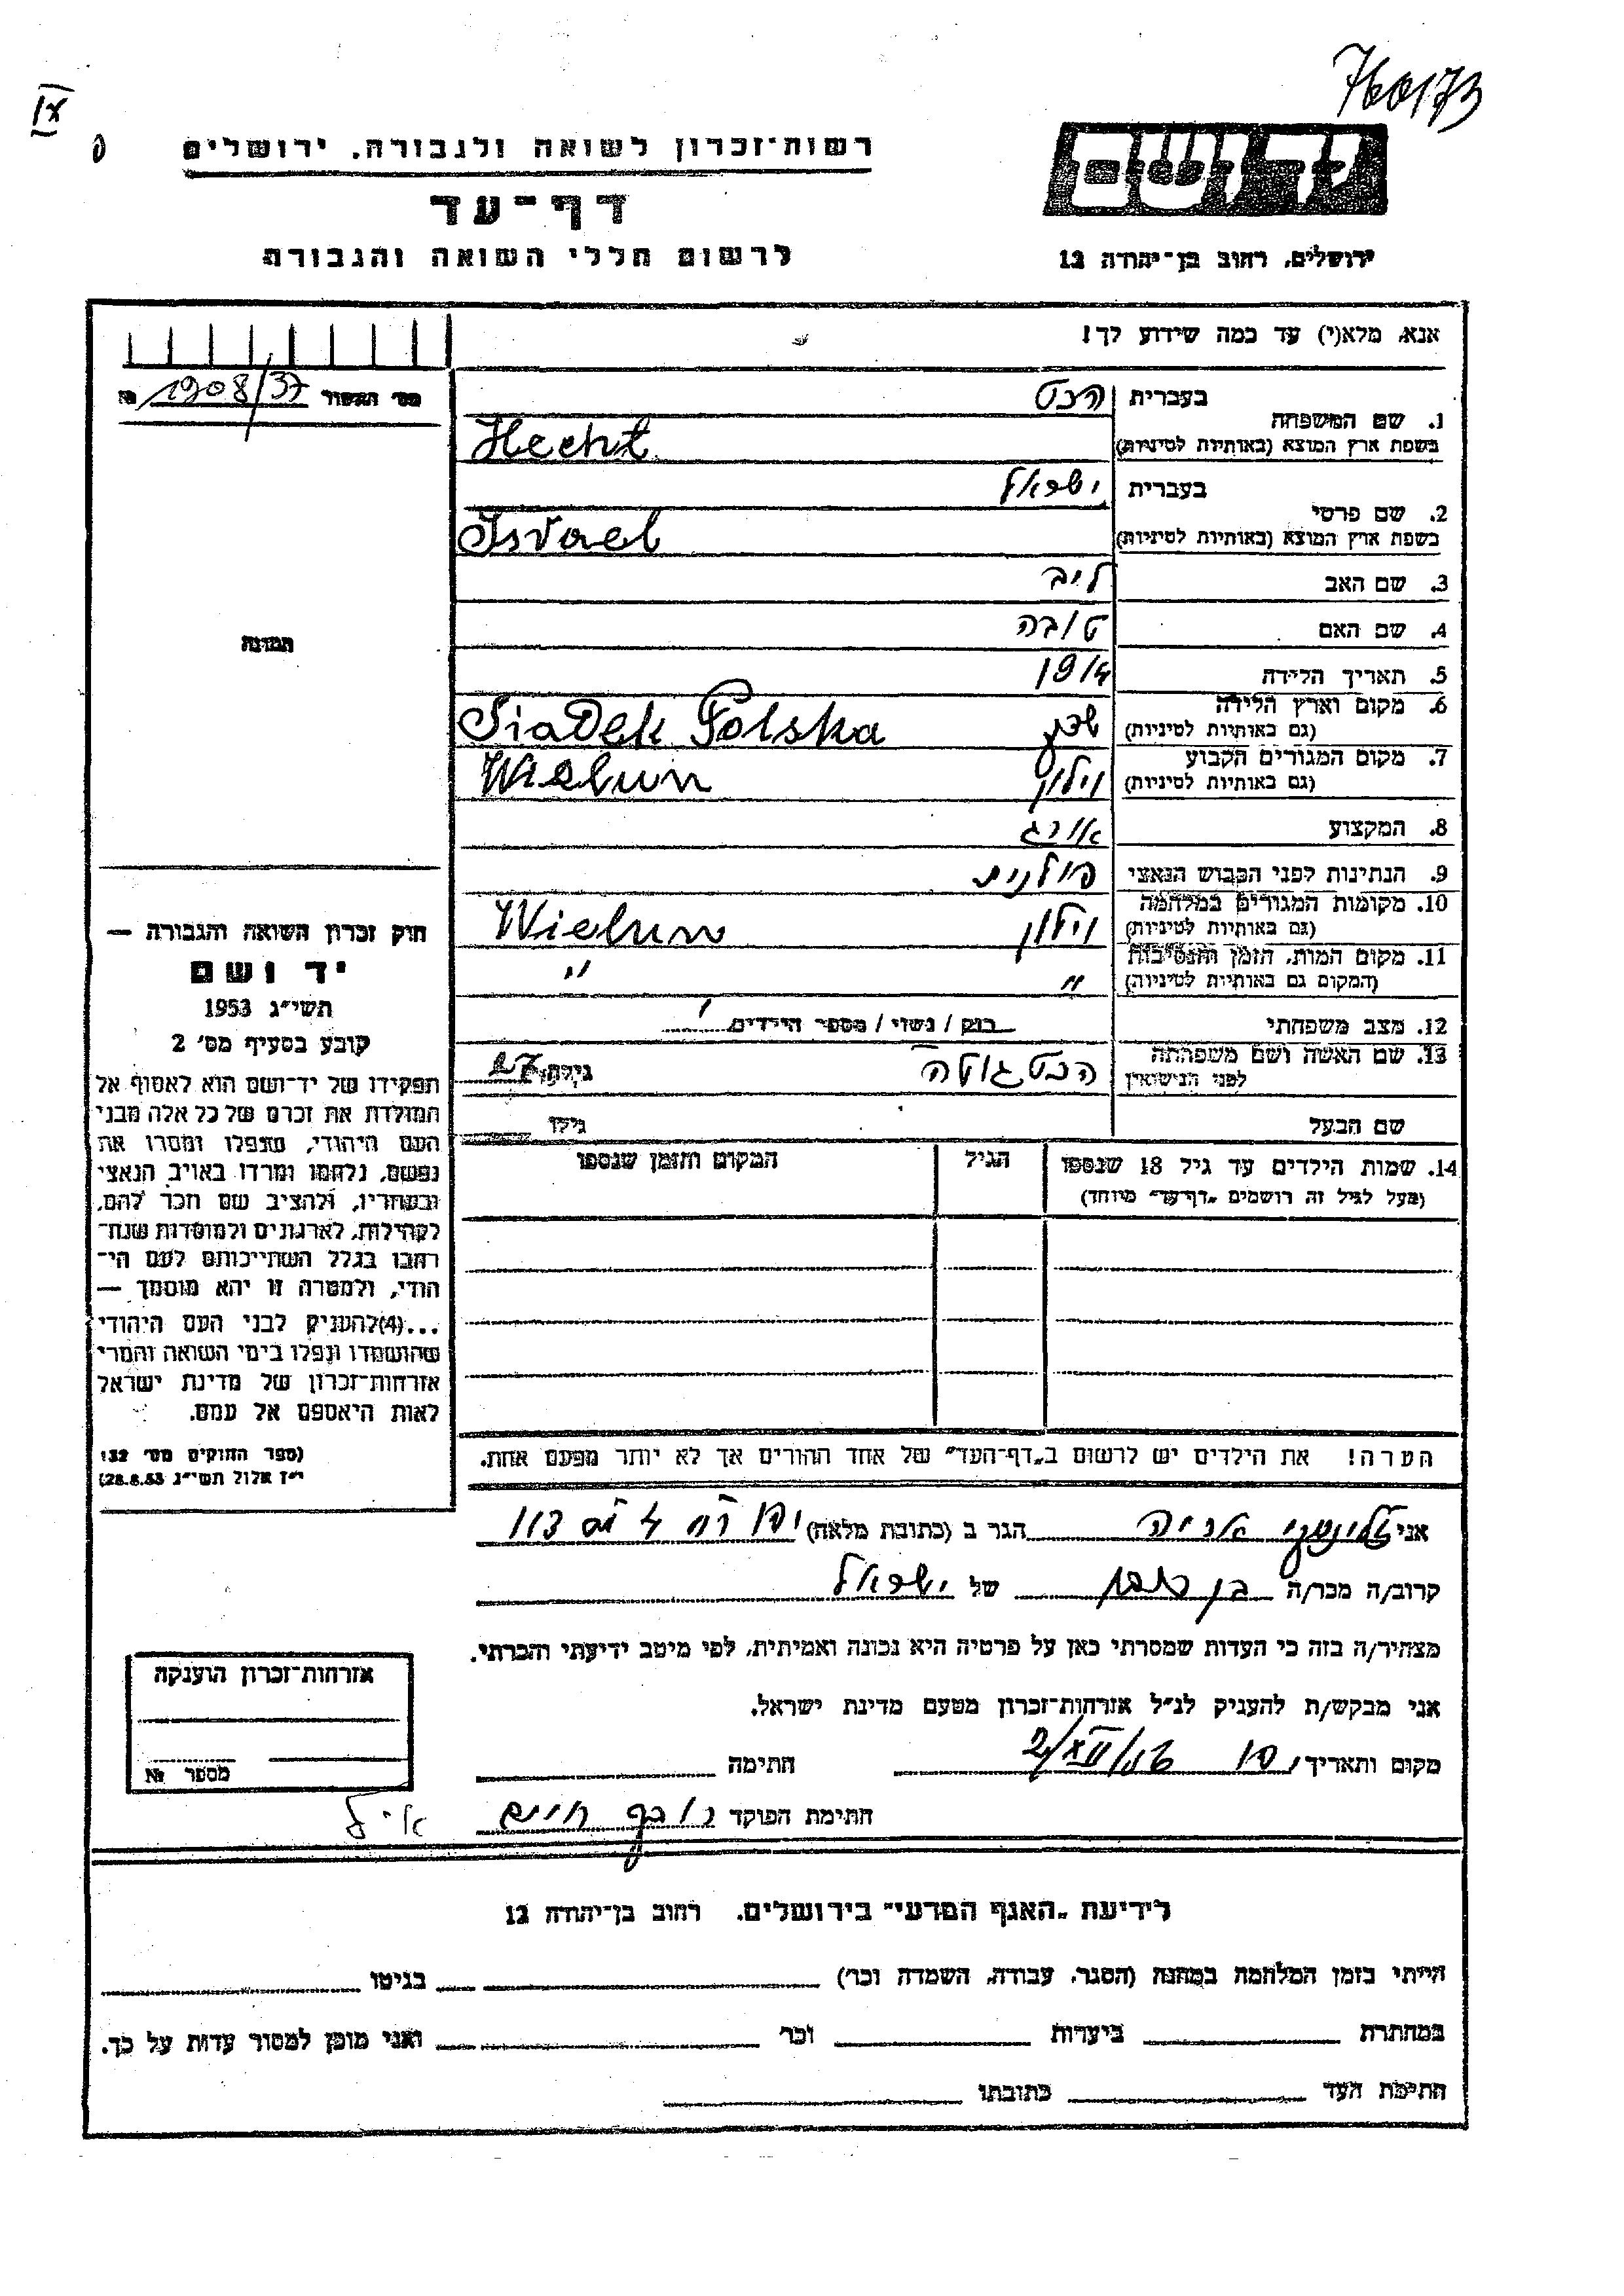 760173
רשות־זכרון לשואה ולגבורה, ירושלים
דף־עד
לרשום חללי השואה והגבורה
ירושלים, רחוב בן־יהודה 12
אנא, מלא(י) עד כמה שידוע לך!
מס׳ האשור 1908/37 №
1. שם המשפחה
בעברית הכט
בשפת ארץ המוצא (באותיות לטיניות) Hecht
2. שם פרטי
בעברית ישראל
בשפת ארץ המוצא (באותיות לטיניות) Israel
3. שם האב ליב
4. שם האם טובה
5. תאריך הלידה 1914
6. מקום וארץ הלידה
(גם באותיות לטיניות) Siadek Polska
7. מקום המגורים הקבוע
(גם באותיות לטיניות) וילון Wielun
8. המקצוע אורג
9. הנתינות לפני הכבוש הנאצי פולנית
10. מקומות המגורים במלחמה
(גם באותיות לטיניות) וילון Wielun
11. מקום המות, הזמן והנסיבות
(המקום גם באותיות לטיניות) " "
12. מצב משפחתי רווק / נשוי / מספר הילדים
13. שם האשה ושם משפחתה
לפני הנישואין הכט גוטה גילה 27
שם הבעל גילו
14. שמות הילדים עד גיל 18 שנספו הגיל המקום והזמן שנספו
(מעל לגיל זה רושמים „דף־עד״ מיוחד)
הערה! את הילדים יש לרשום ב„דף־העד״ של אחד ההורים אך לא יותר מפעם אחת.
התמונה
חוק זכרון השואה והגבורה —
יד ושם
תשי״ג 1953
קובע בסעיף מס׳ 2
תפקידו של יד־ושם הוא לאסוף אל
המולדת את זכרם של כל אלה מבני
העם היהודי, שנפלו ומסרו את
נפשם, נלחמו ומרדו באויב הנאצי
ובעוזריו, ולהציב שם וזכר להם,
לקהילות, לארגונים ולמוסדות שנח־
רבו בגלל השתייכותם לעם הי־
הודי, ולמטרה זו יהא מוסמך —
...(4)להעניק לבני העם היהודי
שהושמדו ונפלו בימי השואה והמרי
אזרחות־זכרון של מדינת ישראל
לאות היאספם אל עמם.
(ספר החוקים מס׳ 132
י״ז אלול תשי״ג 28.8.53)
אני אריה הגר ב (כתובת מלאה)
קרוב/ה מכר/ה בן דודו של ישראל
מצהיר/ה בזה כי העדות שמסרתי כאן על פרטיה היא נכונה ואמיתית, לפי מיטב ידיעתי והכרתי.
אני מבקש/ת להעניק לנ״ל אזרחות־זכרון מטעם מדינת ישראל.
מקום ותאריך חתימה
חתימת הפוקד חיים
אזרחות־זכרון הוענקה
מספר №
לידיעת „האגף המדעי״ בירושלים, רחוב בן־יהודה 12
הייתי בזמן המלחמה במחנה (הסגר, עבודה, השמדה וכו׳) בגיטו
במחתרת ביערות וכו׳ ואני מוכן למסור עדות על כך.
חתימת העד כתובתו